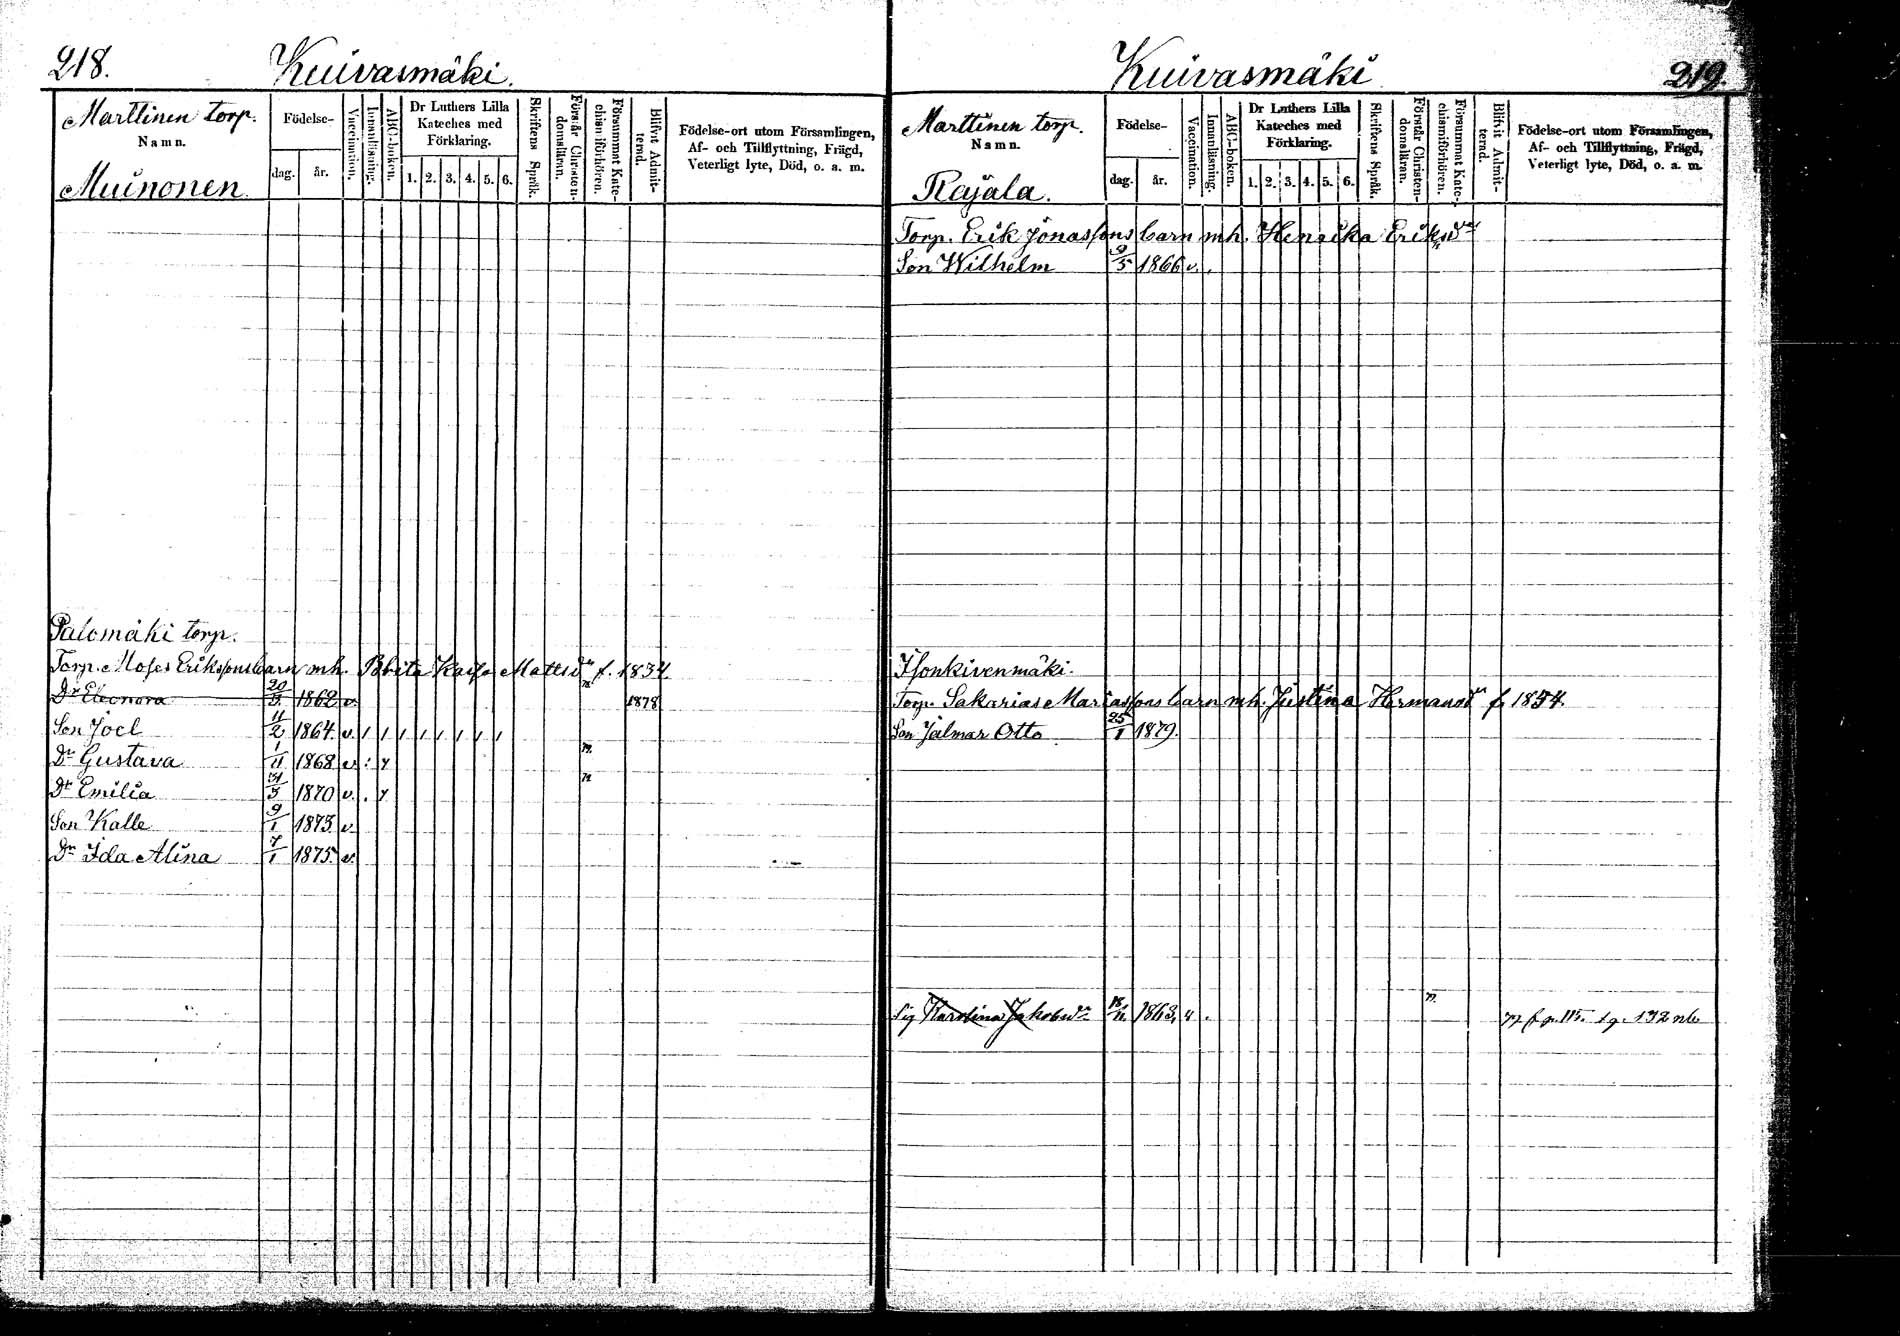 218.
Kuivasmäki.
Marttinen torp.
Namn.
Muinonen.
Födelse-
dag. år.
Vaccination.
Innanläsning.
ABC-boken.
Dr Luthers Lilla Kateches med Förklaring.
1. 2. 3. 4. 5. 6.
Skriftens Språk.
Förstår Christendomsläran.
Försummat Katechismiförhören.
Blifvit Admitterad.
Födelse-ort utom Församlingen,
Af- och Tillflyttning, Frägd,
Veterligt lyte, Död, o. a. m.
Palomäki torp.
Torp. Moses Erikssons barn mh. Brita Kaisa Mattsdr f. 1834.
Dr Eleonora 20/3 1862 v. 1878
Son Joel 11/2 1864 v. / / / / / / / /
Dr Gustava 1/11 1868 v.
Dr Emilia 1870 v.
Son Kalle 9/1 1873 v.
Dr Ida Alina 7/1 1875 v.
Kuivasmäki
219.
Marttinen torp.
Namn.
Rajala.
Födelse-
dag. år.
Vaccination.
Innanläsning.
ABC-boken.
Dr Luthers Lilla Kateches med Förklaring.
1. 2. 3. 4. 5. 6.
Skriftens Språk.
Förstår Christendomsläran.
Försummat Katechismiförhören.
Blifvit Admitterad.
Födelse-ort utom Församlingen,
Af- och Tillflyttning, Frägd,
Veterligt lyte, Död, o. a. m.
Torp. Erik Jonassons barn mh. Henrika Eriksdr
Son Wilhelm 9/5 1866 v.
Isonkivenmäki.
Torp. Sakarias Mariassons barn mh. Justina Hermansdr f. 1854.
Son Jalmar Otto 25/1 1879.
Karolina Jakobsdr 1863